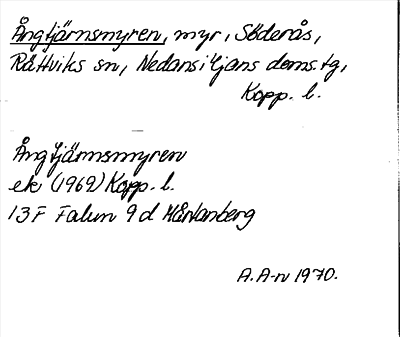 Ångtjärnsmyren, myr, Söderås,
Rättviks sn, Nedansiljans doms.tg,
Kopp. l.
Ångtjärnsmyren
ek (1969) Kopp. l.
13F Falun 9d Mårtanberg
A. A-n 1970.